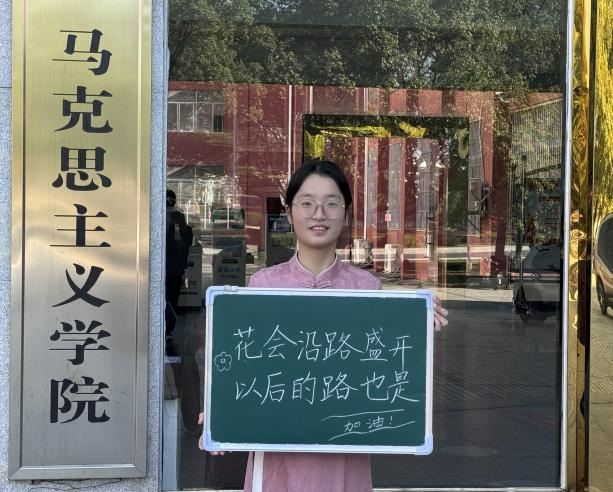 马克思主义学院
花会沿路盛开
以后的路也是
加油！